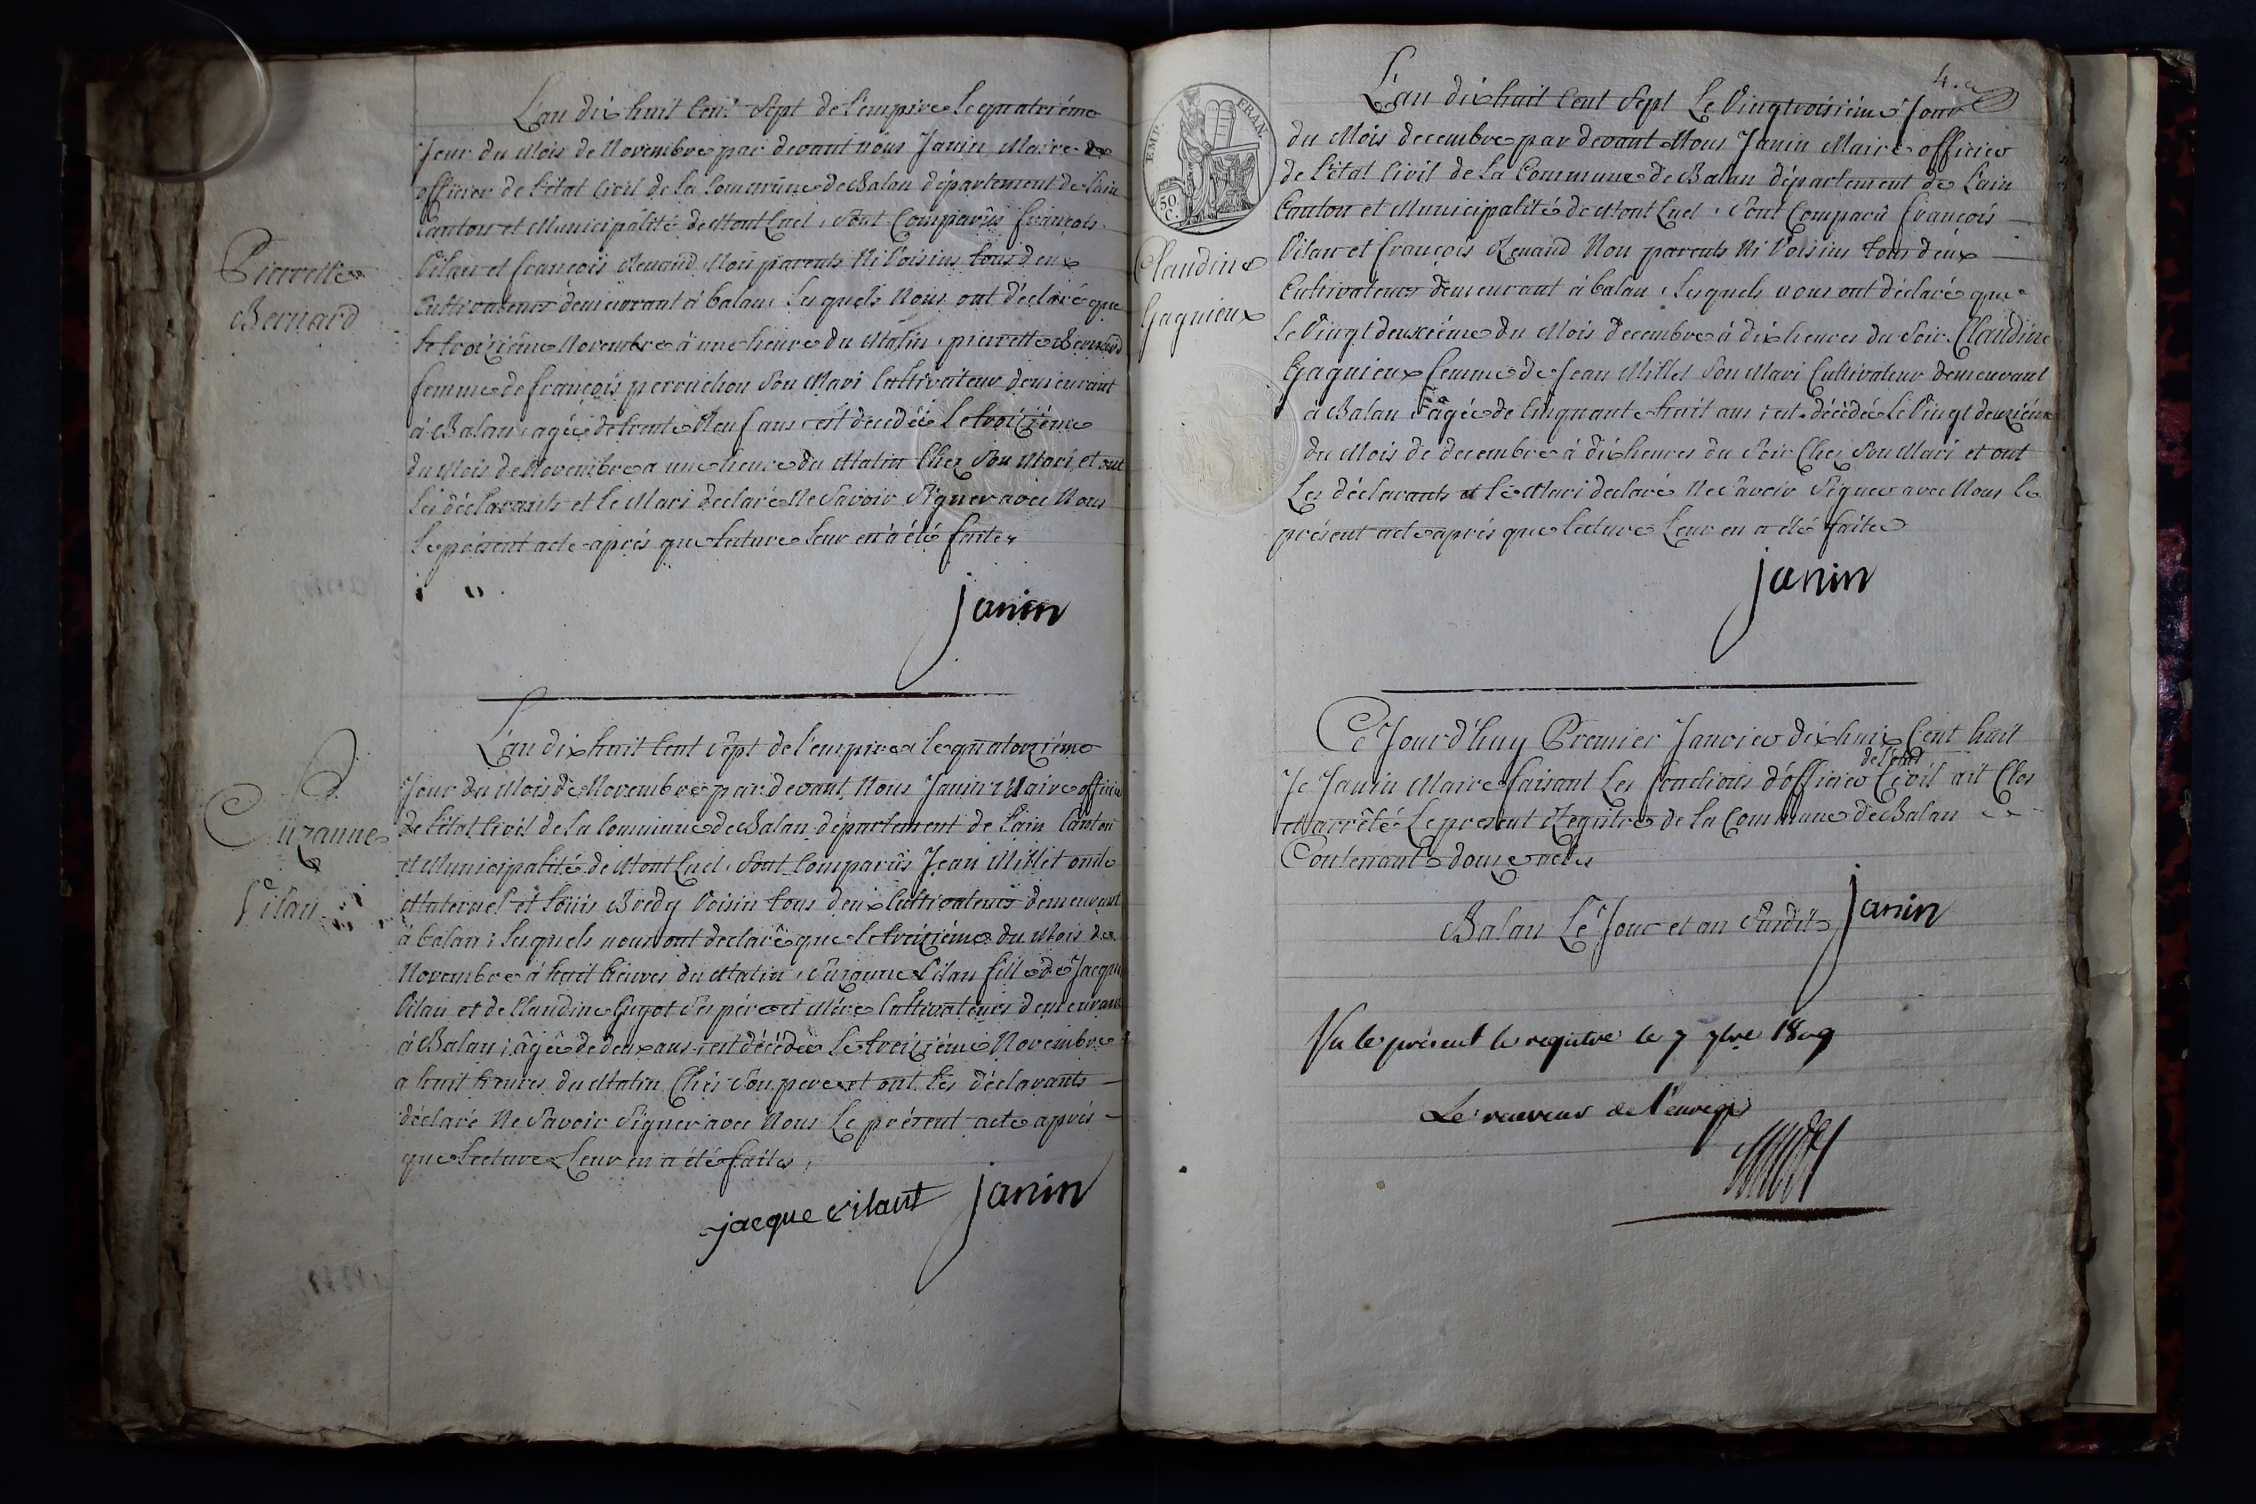 L'an dix huit Cent Sept de l'empire le quatriéme
Jour du Mois de Novembre par devant nous Janin Maire
officier de l'état Civil de la Commune de Balan département de l'ain
Canton et Municipalité de MontLuel, Sont Comparûs françois
Vilan et françois Renand Non parents Ni Voisins tous deux
Cultivateurs demeurant à balan, Lesquels Nous ont déclaré que
le troiziéme Novembre à une heure du Matin, pierrette Bernard
femme de françois perruchon Son Mari Cultivateur demeurant
à Balan, agée de trente Neuf ans, est decédée Le troiziéme
du Mois de Novembre a une heure du Matin Chez Son Mari, et ont
Les déclarants et le Mari declaré Ne Savoir Signer avec Nous
Le présent acte après que lecture leur en a été faite
Pierrette
Bernard
janin
L'an dix huit Cent Sept de l'empire le quatorziéme
Jour du Mois de Novembre par devant Nous Janin Maire officier
de l'état Civil de la Commune de Balan département de l'ain Canton
et Municipalité de MontLuel, Sont Comparûs Jean Millet oncle
Maternel et Louis Bredy Voisin tous deux Cultivateurs demeurant
à balan; lesquels nous ont declaré que le treiziéme du Mois de
Novembre à huit heures du Matin, Suzanne Vilan fille de Jacque
Vilan et de Claudine Guyot Ses pére et Mére Cultivateurs demeurant
à Balan; âgée de deux ans, est décédée Le treiziéme Novembre
a huit heures du Matin Chés Son pere et ont Les déclarants
déclaré Ne Savoir Signer avec Nous Le présent acte aprés
que Lecture Leur en a été faite,
Suzanne
Vilan
jacque vilant janin
4.e
L'an dix huit Cent Sept Le Vingtroisiéme Jour
du Mois decembre par devant Nous Janin Maire officier
de l'état Civil de la Commune de Balan département de L'ain
Canton et Municipalité de MontLuel, Sont Comparû françois
Vilan et françois Renand Non parents Ni Voisins tous deux
Cultivateurs demeurant à balan, Lesquels nous ont déclaré que
Le Vingt deuxiéme du Mois Decembre à dix heures du Soir Claudine
Gagnieux femme de Jean Millet Son Mari Cultivateur demeurant
à Balan âgée de Cinquante huit ans, est décédée Le Vingt deuxiéme
du Mois de decembre à dix heures du Soir Chez Son Mari et ont
Les déclarants et Le Mari declaré Ne Savoir Signer avec Nous Le
présent acte aprés que lecture Leur en a été faite
EMP. FRAN.
50 C.
Claudine
Gagnieux
janin
Ce Jourd'huy Premier Janvier dix huit Cent huit
Je Janin Maire faisant Les fonctions d'officier de l'état Civil ait Clos
et arrêté Le present Registre de la Commune de Balan
Contenant douze actes
Balan Le Jour et an Susdit janin
Vu le présent le registre le 7 7bre 1809
Le receveur de l'enreg.